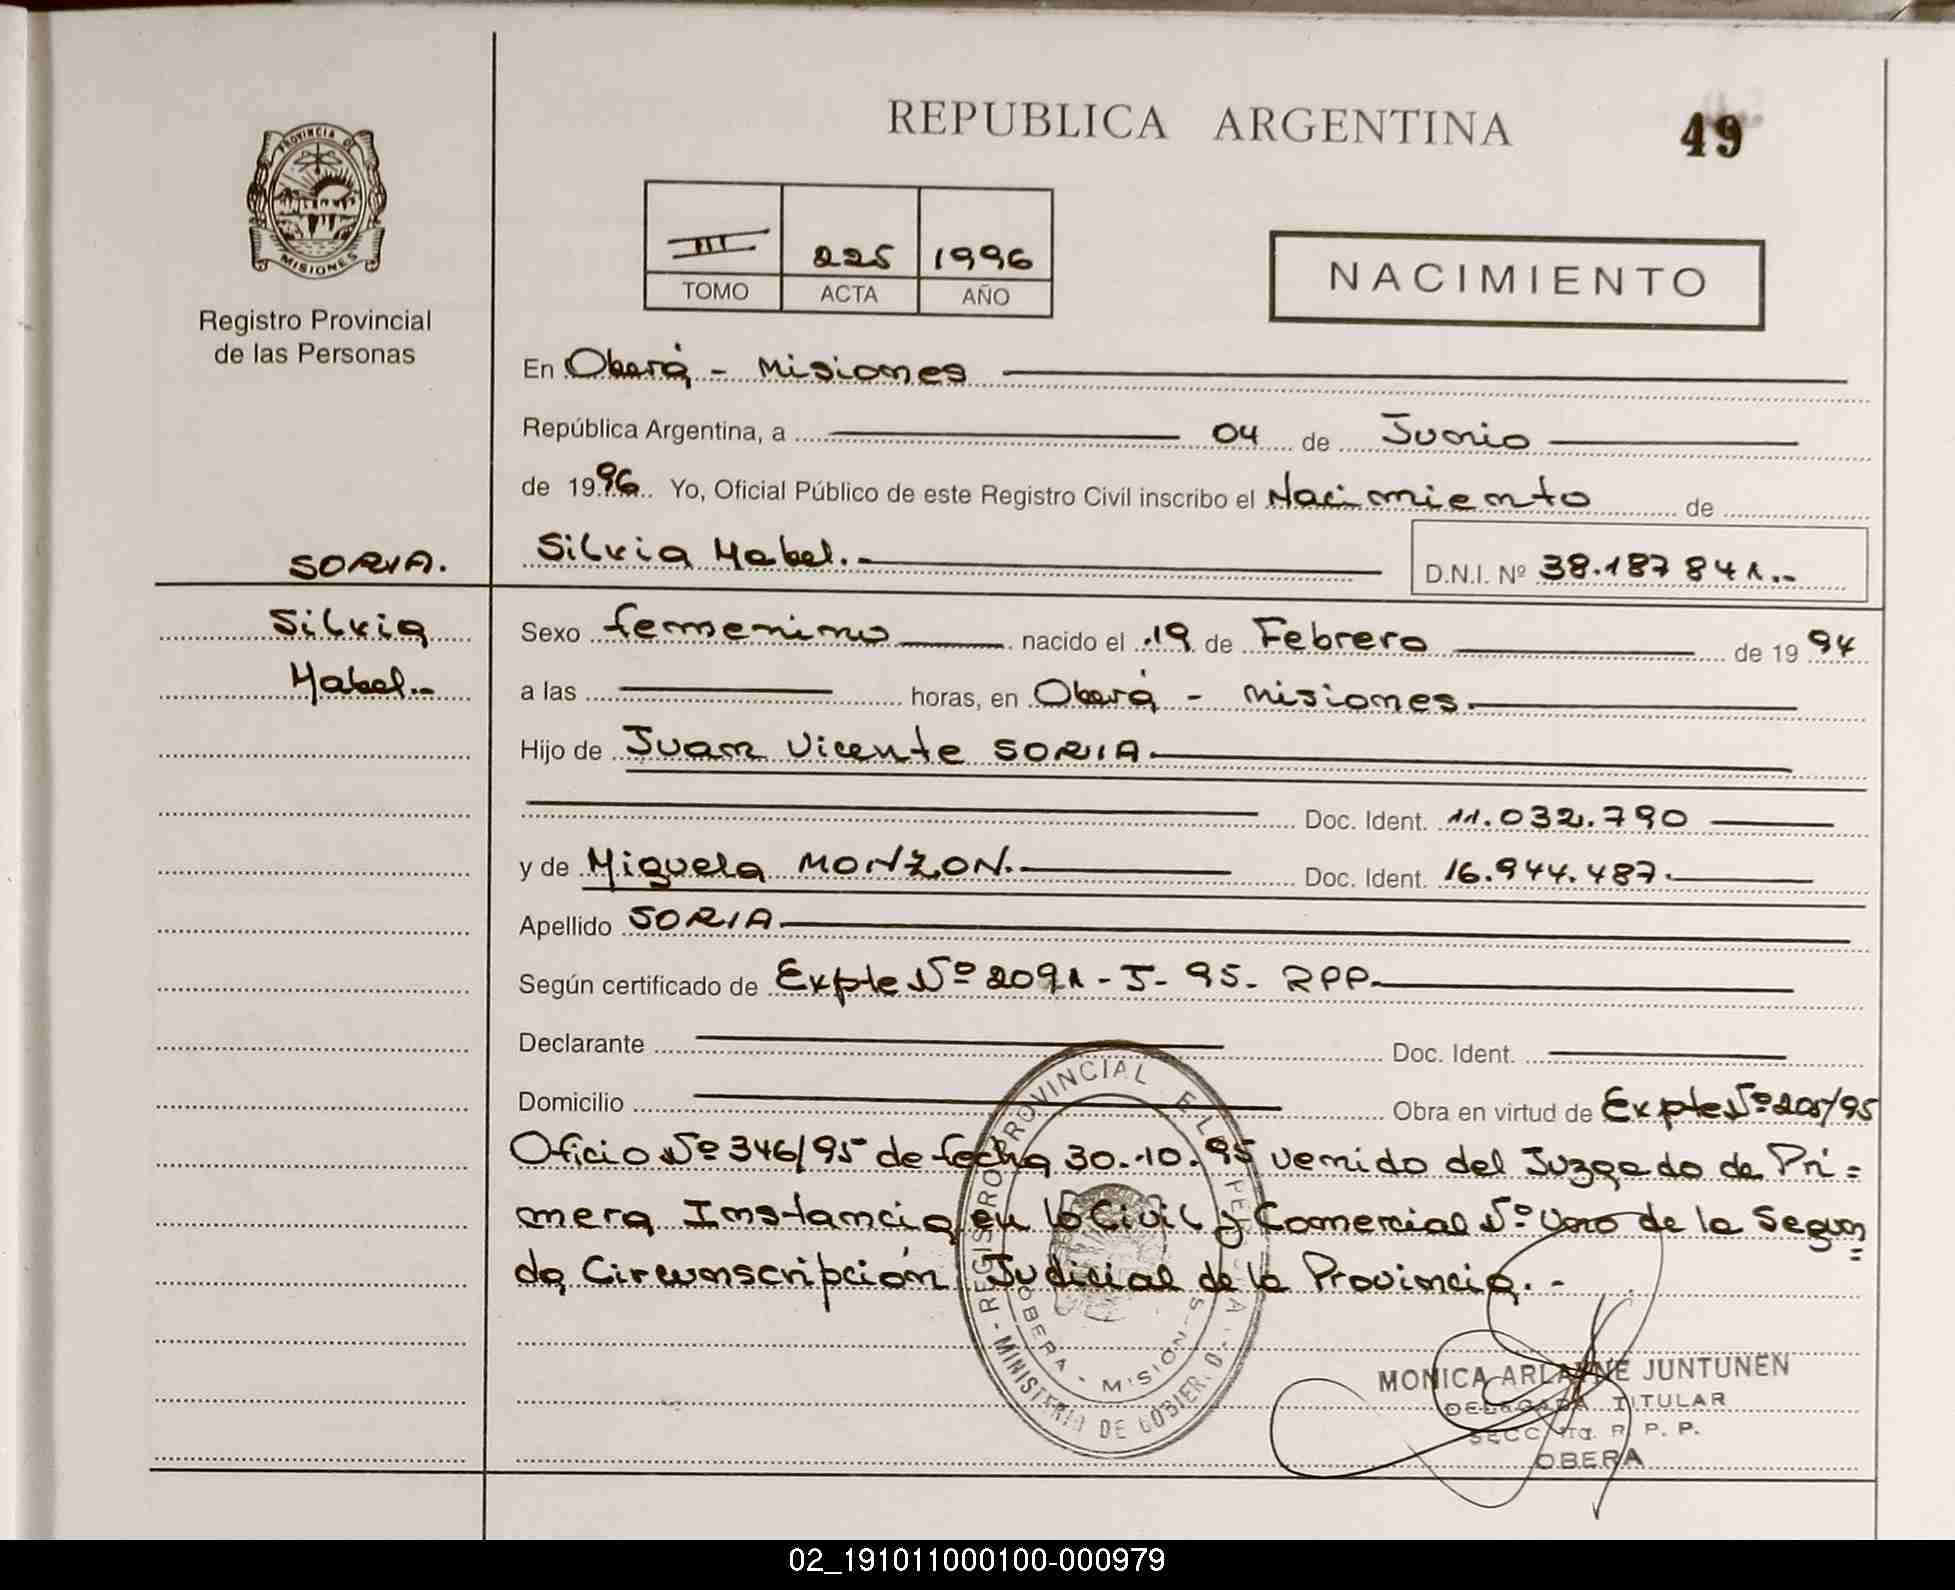 REPUBLICA ARGENTINA
49
PROVINCIA DE
MISIONES
Registro Provincial
de las Personas
III 225 1996
TOMO ACTA AÑO
NACIMIENTO
En Oberá - Misiones
República Argentina, a 04 de Junio
de 1996 Yo, Oficial Público de este Registro Civil inscribo el Nacimiento de
SORIA.
Silvia Mabel.
D.N.I. Nº 38.187841..
Silvia
Mabel..
Sexo femenino nacido el 19 de Febrero de 1994
a las horas, en Oberá - Misiones.
Hijo de Juan Vicente SORIA
Doc. Ident. 11.032.790
y de Miguela MONZON. Doc. Ident. 16.944.487.
Apellido SORIA
Según certificado de Expte Nº 2091-J-95. RPP
Declarante Doc. Ident.
Domicilio Obra en virtud de Expte Nº /95
Oficio Nº 346/95 de fecha 30.10.95 venido del Juzgado de Pri=
mera Instancia en lo Civil y Comercial Nº Uno de la Segun=
da Circunscripción Judicial de la Provincia.-
REGISTRO PROVINCIAL
MINISTERIO DE GOBIERNO
OBERA - MISIONES
MONICA ARLAYNE JUNTUNEN
DELEGADA TITULAR
R. P. P.
OBERA
02_191011000100-000979